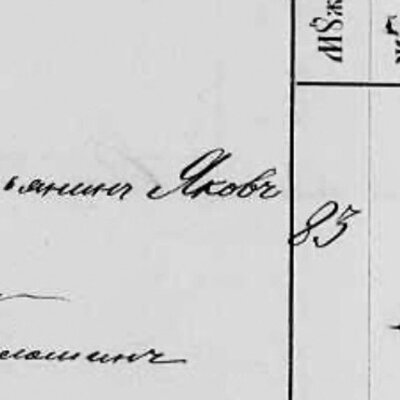 Муж
ьянинъ Яковъ
83
лошинъ